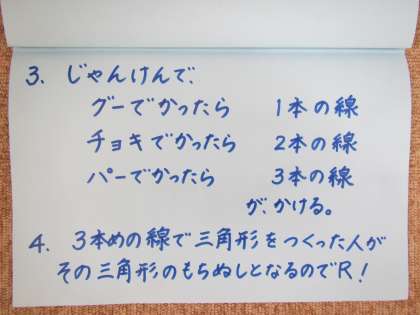 3. じゃんけんで、
グーでかったら 1本の線
チョキでかったら 2本の線
パーでかったら 3本の線
が、かける。
4. 3本めの線で三角形をつくった人が
その三角形のもちぬしとなるのでR!